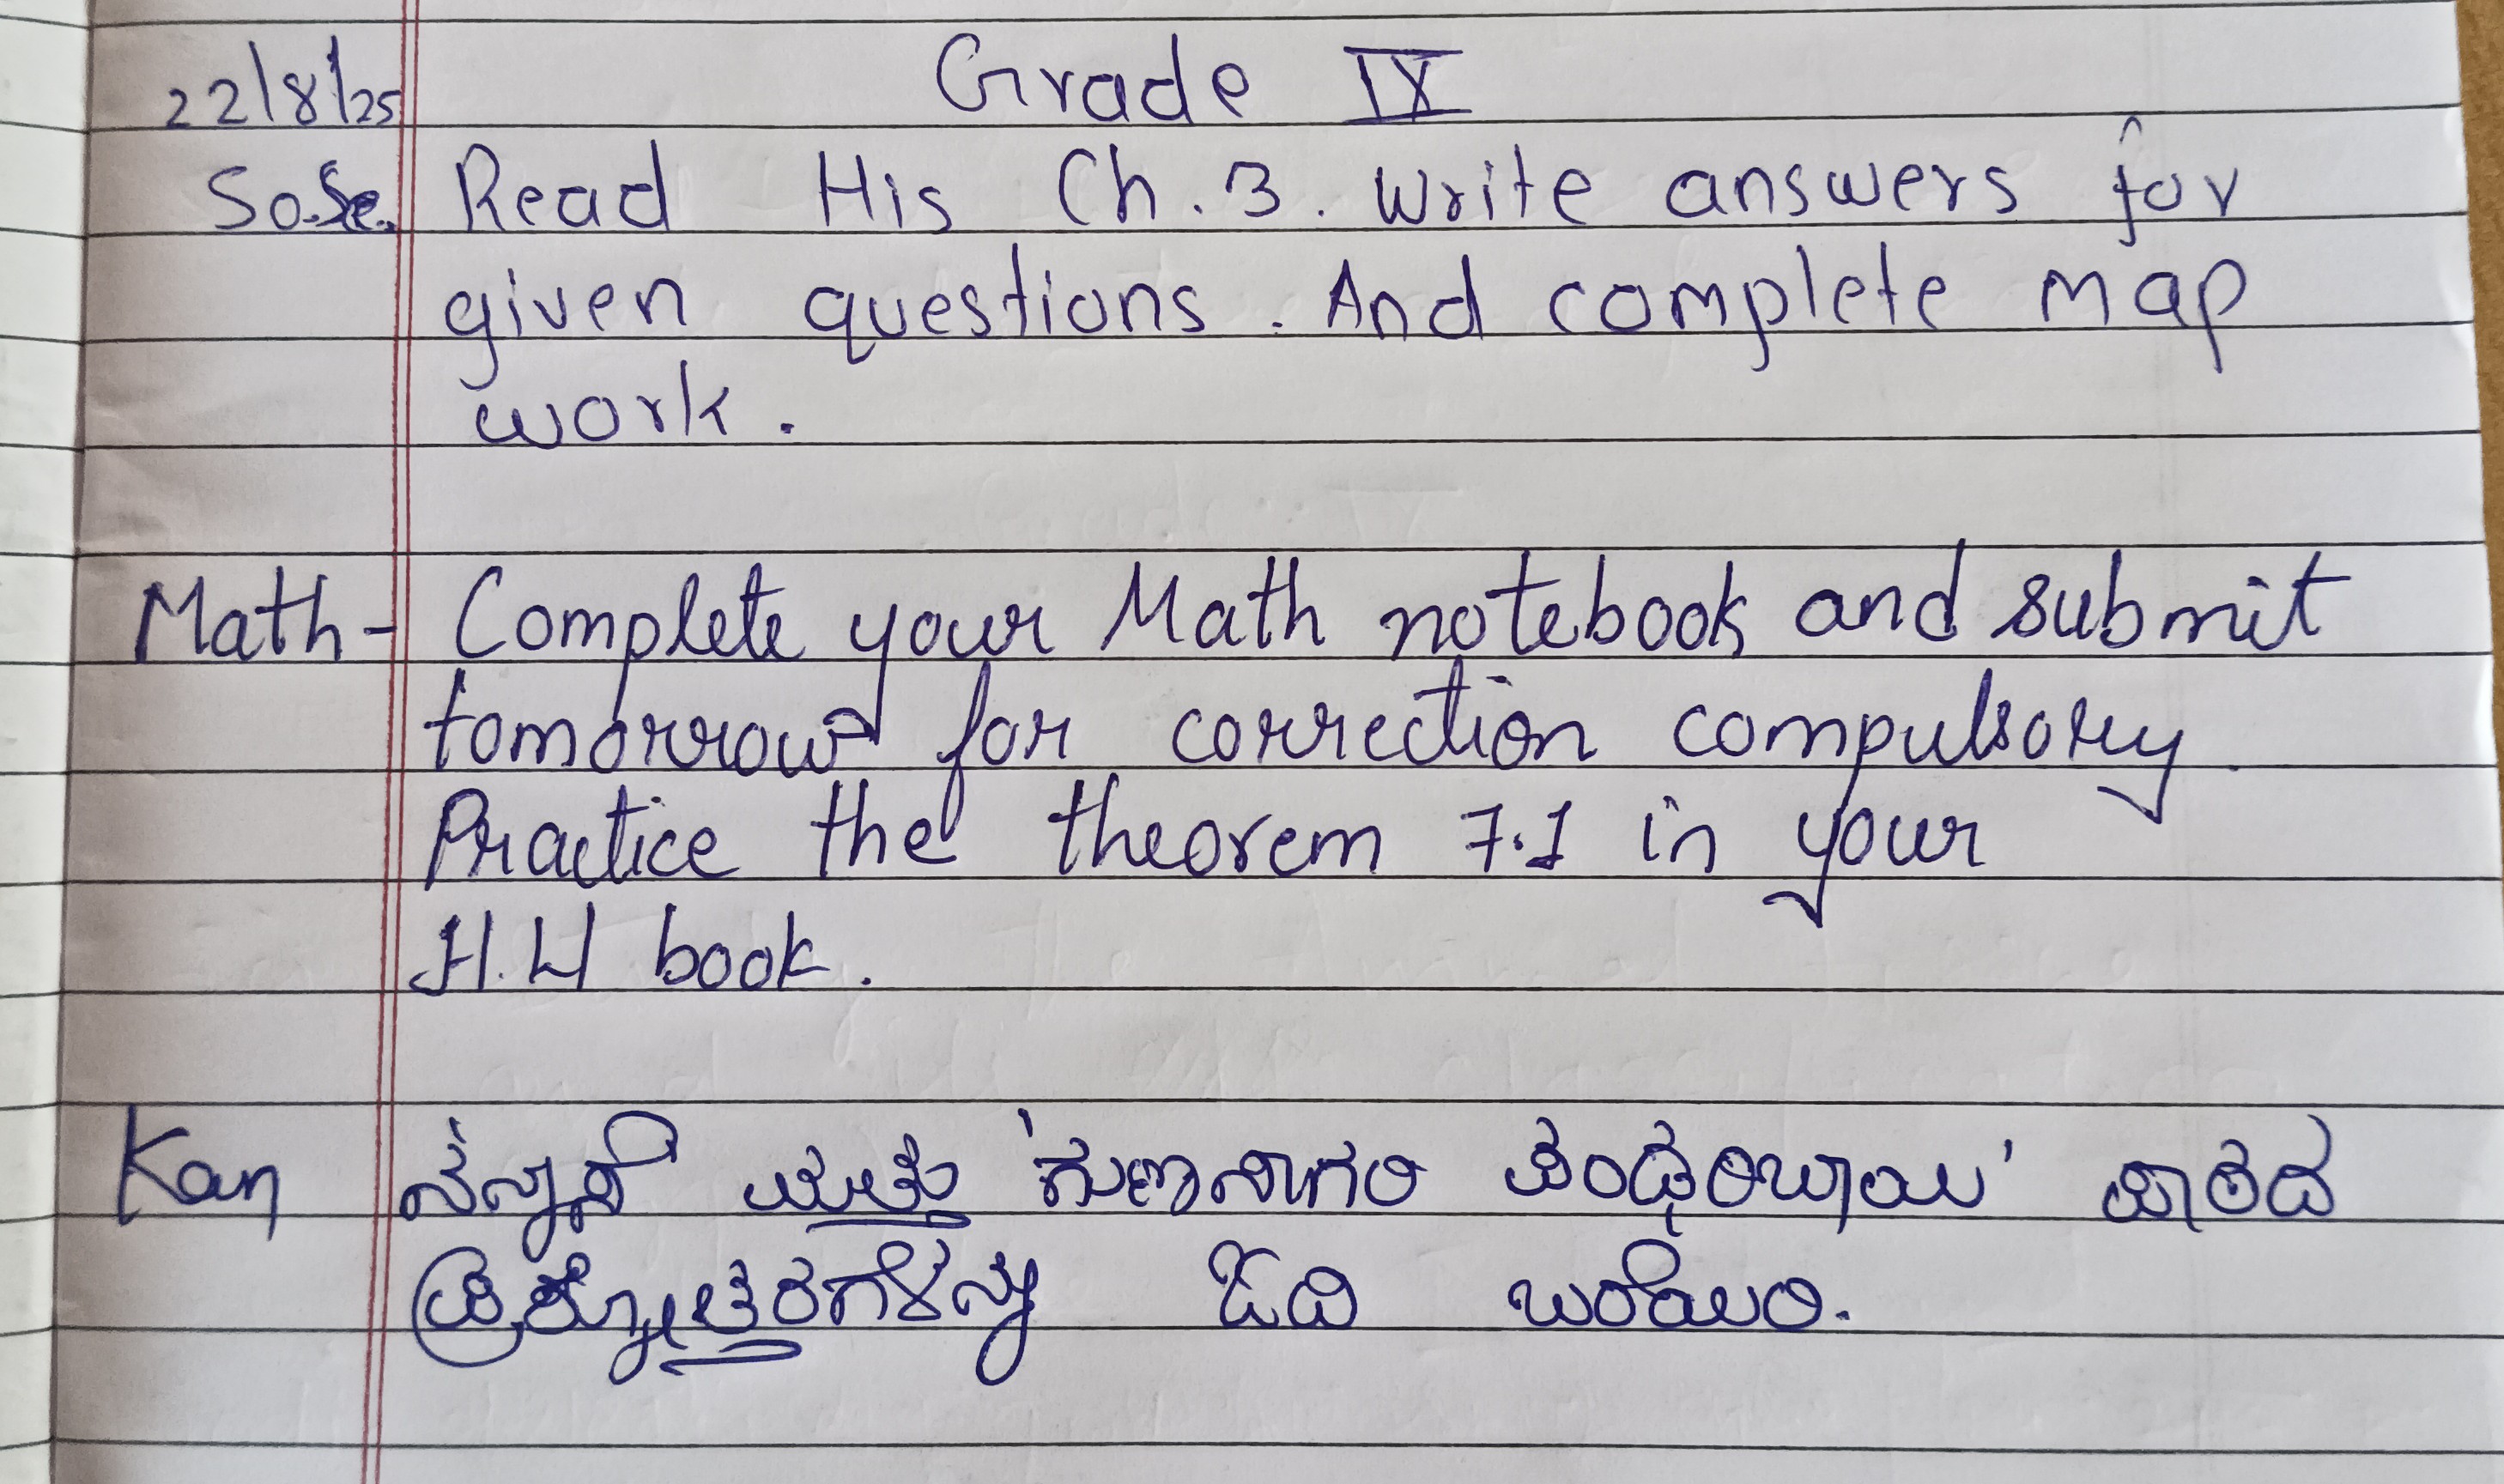 22/8/25 Grade IX
So.Sc. Read His Ch. 3. Write answers for
given questions. And complete map
work.
Math- Complete your Math notebook and submit
tomorrow for correction compulsory.
Practice the theorem 7.1 in your
H.W book.
Kan ಮತ್ತು 'ಗುಣಸಾಗರಿ ಪಂಢರಿಬಾಯಿ' ಪಾಠದ
ಪ್ರಶ್ನೋತ್ತರಗಳನ್ನು ಓದಿ ಬರೆಯಿರಿ.